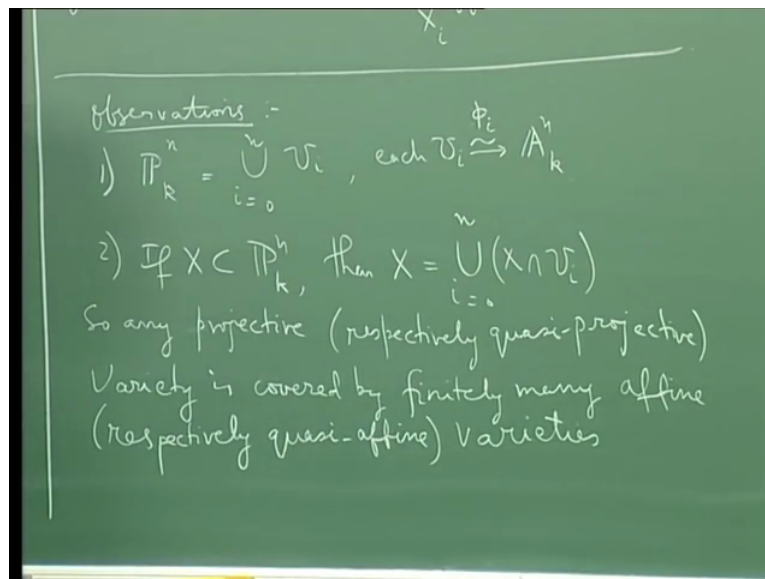 X_i
observations :-
1) ℙ^n_k = ⋃_{i=0}^n U_i , each U_i ≃→^{ϕ_i} 𝔸^n_k
2) If X ⊂ ℙ^n_k, then X = ⋃_{i=0}^n (X ∩ U_i)
So any projective (respectively quasi-projective)
Variety is covered by finitely many affine
(respectively quasi-affine) varieties